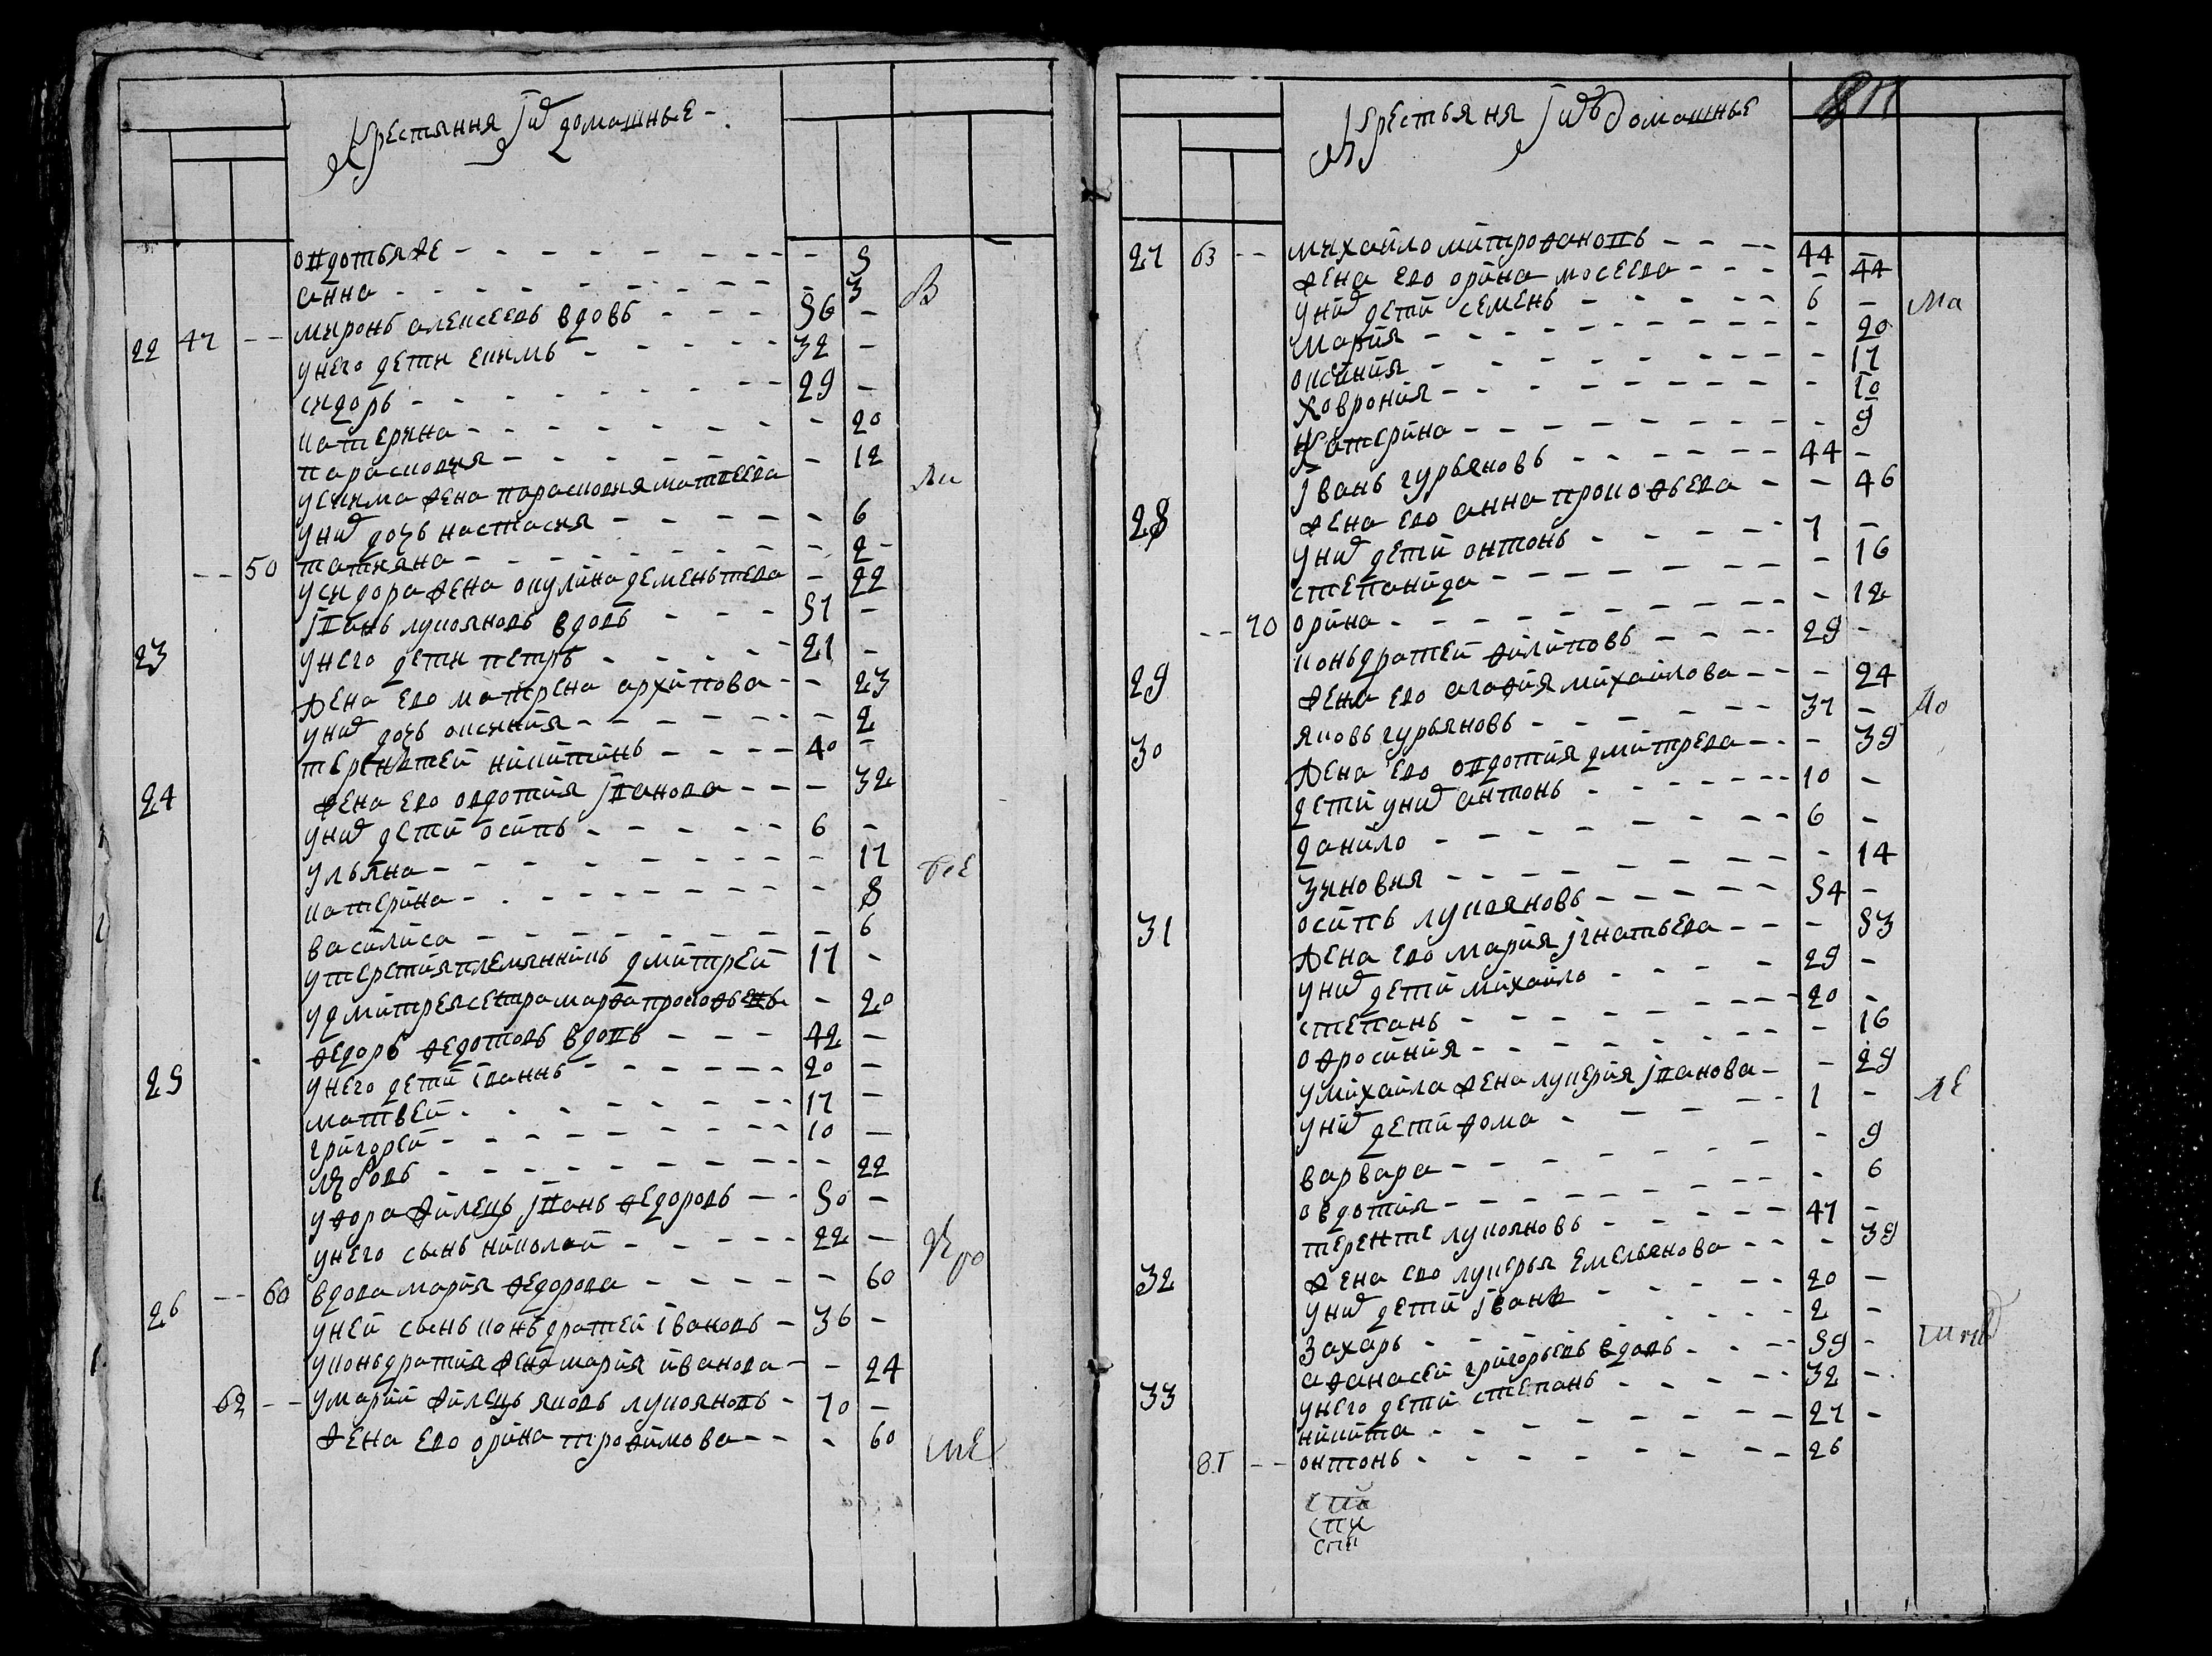 Крестьяння їихъ домашные
овдотья же - 5
анна - 3
22 47 -- миронъ алексеевъ вдовъ 56 -
унего дети екимъ 32 -
сидоръ 29 -
катерина - 20
парасковия - 12
уекима жена парасковия матвеева
унихъ дочь настасия - 6
татияна - 2
-- 50 усидора жена окулина дементьева - 22
23 їванъ лукояновъ вдовъ 51 -
унего дети петръ 21 -
жена ево матрена архипова - 23
унихъ дочь оксиния - 2
24 терентей никитинъ 40 -
жена ево овдотия їванова - 32
унихъ дети осипъ 6 -
ульяна - 17
катерина - 8
василиса - 6
утерентия племянникъ дмитрей 17 -
удмитрея сестра марфа прокофьева - 20
25 федоръ федотовъ вдовъ 42 -
унего дети їваннъ 20 -
матвей 17 -
григорей 10 -
любовь - 22
уфедора жилецъ їванъ федоровъ 50 -
унего сынъ николай 22 -
26 -- 60 вдова мария федорова - 60
уней сынъ кондратей ївановъ 36 -
укондратия жена мария иванова - 24
62 -- умарии жилецъ яковъ лукояновъ 70 -
жена ево орина трофимова - 60
В
ли
Про
ше
Крестьяня їихъ домашные
27 63 -- михайло митрофановъ 44 -
жена ево орина мосеева - 44
унихъ дети семенъ 6 -
мария - 20
оксиния - 17
ховрония - 10
катерина - 9
28 їванъ гурьяновъ 44 -
жена ево анна прокофьева - 46
унихъ дети онтонъ 7 -
степанида - 16
-- 70 орина - 12
29 кондратей филиповъ 29 -
жена ево агафия михайлова - 24
30 яковъ гурьяновъ 37 -
жена ево овдотия дмитрева - 39
дети унихъ антонъ 10 -
данило 6 -
зиновия - 14
31 осипъ лукояновъ 54 -
жена ево мария їгнатьева - 53
унихъ дети михайло 29 -
степанъ 20 -
офросиния - 16
умихайла жена лукерия їванова - 29
унихъ дети фома 1 -
варвара - 9
овдотия - 6
32 теренте лукояновъ 47 -
жена ево лукерья емельянова - 39
унихъ дети їванъ 20 -
захаръ 2 -
33 афанасей григорьевъ вдовъ 59 -
унего дети степанъ 32 -
никита 27 -
81 -- онтонъ 26
Ма
ло
ле